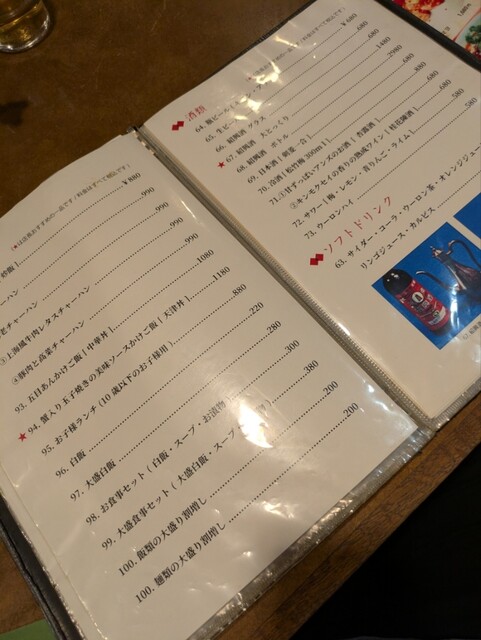 (★は店長おすすめの一品です / 料金はすべて税込です)
炒飯 ] ¥ 880
ーハン 990
老チャーハン 990
③上海風牛肉レタスチャーハン 990
④豚肉と高菜チャーハン 990
93. 五目あんかけご飯 [ 中華丼 ] 1080
★ 94. 蟹入り玉子焼きの美味ソースかけご飯 [ 天津丼 ] 1180
95. お子様ランチ (10 歳以下のお子様用 ) 880
96. 白飯 220
97. 大盛白飯 280
98. お食事セット ( 白飯・スープ・お漬物 ) 300
99. 大盛食事セット ( 大盛白飯・スープ 380
100. 飯類の大盛り割増し 200
100. 麺類の大盛り割増し 200
酒類
料金はすべて税込です )
64. 瓶ビール ¥ 680
65. 生ビー 680
66. 紹興酒 グラス 380
★ 67. 紹興酒 大とっくり 1480
68. 紹興酒 ボトル 2980
69. 日本酒 [ 剣菱 一合 ] 680
70. 冷酒 [ 松竹梅 300m l ] 880
71. ①甘ずっぱいアンズのお酒 [ 杏露酒 ] 680
②キンモクセイの香りの熟成ワイン [ 桂花陳酒 ] 680
72. サワー [ 梅・レモン・青りんご・ライム ] 580
73. ウーロンハイ 580
ソフトドリンク
63. サイダー・コーラ・ウーロン茶・オレンジジュー
リンゴジュース・カルピス